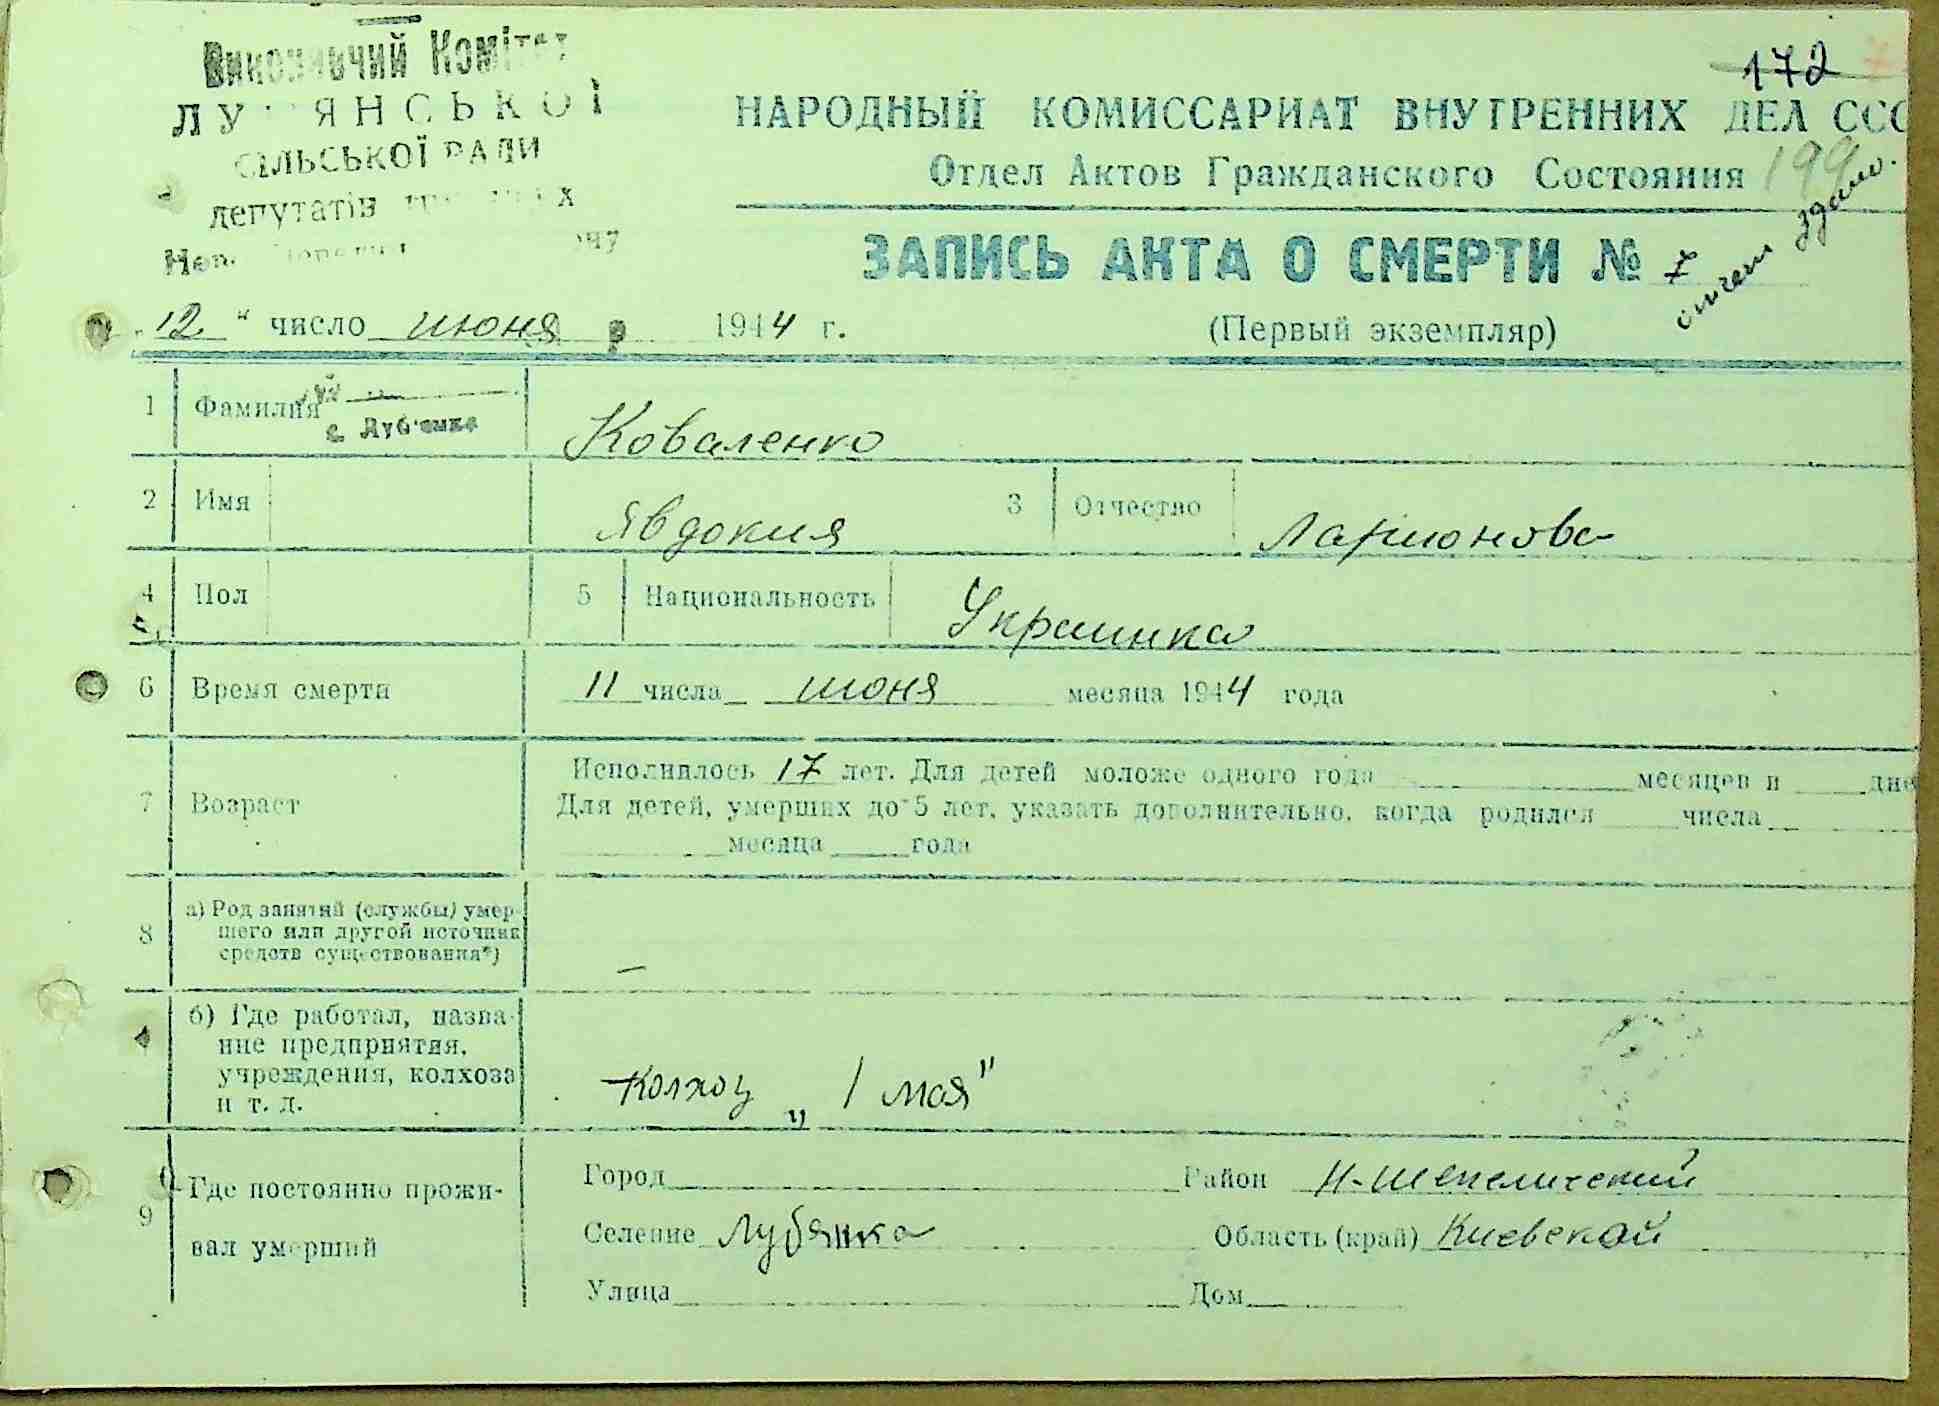 Виконавчий Комітет
ЯНСЬКОЇ
СІЛЬСЬКОЇ РАДИ
депутатів
172
НАРОДНЫЙ КОМИССАРИАТ ВНУТРЕННИХ ДЕЛ ССС
Отдел Актов Гражданского Состояния 199
ЗАПИСЬ АКТА О СМЕРТИ № 7
отчет здано.
„12" число июня 1944 г.
(Первый экземпляр)
1 Фамилия Коваленко
с. Луб'янка
2 Имя Явдокия 3 Отчество Ларионова
4 Пол 5 Национальность Украинка
6 Время смерти 11 числа июня месяца 1944 года
7 Возраст Исполнилось 17 лет. Для детей моложе одного года месяцев и дне
Для детей, умерших до 5 лет, указать дополнительно, когда родился числа
месяца года
8 а) Род занятий (службы) умер-
шего или другой источник
средств существования*) –
б) Где работал, назва-
ние предприятия,
учреждения, колхоза
и т. д.
Колхоз „1 мая"
9 Где постоянно прожи-
вал умерший
Город Район Н-Шепеличский
Селение Лубянка Область (край) Киевской
Улица Дом